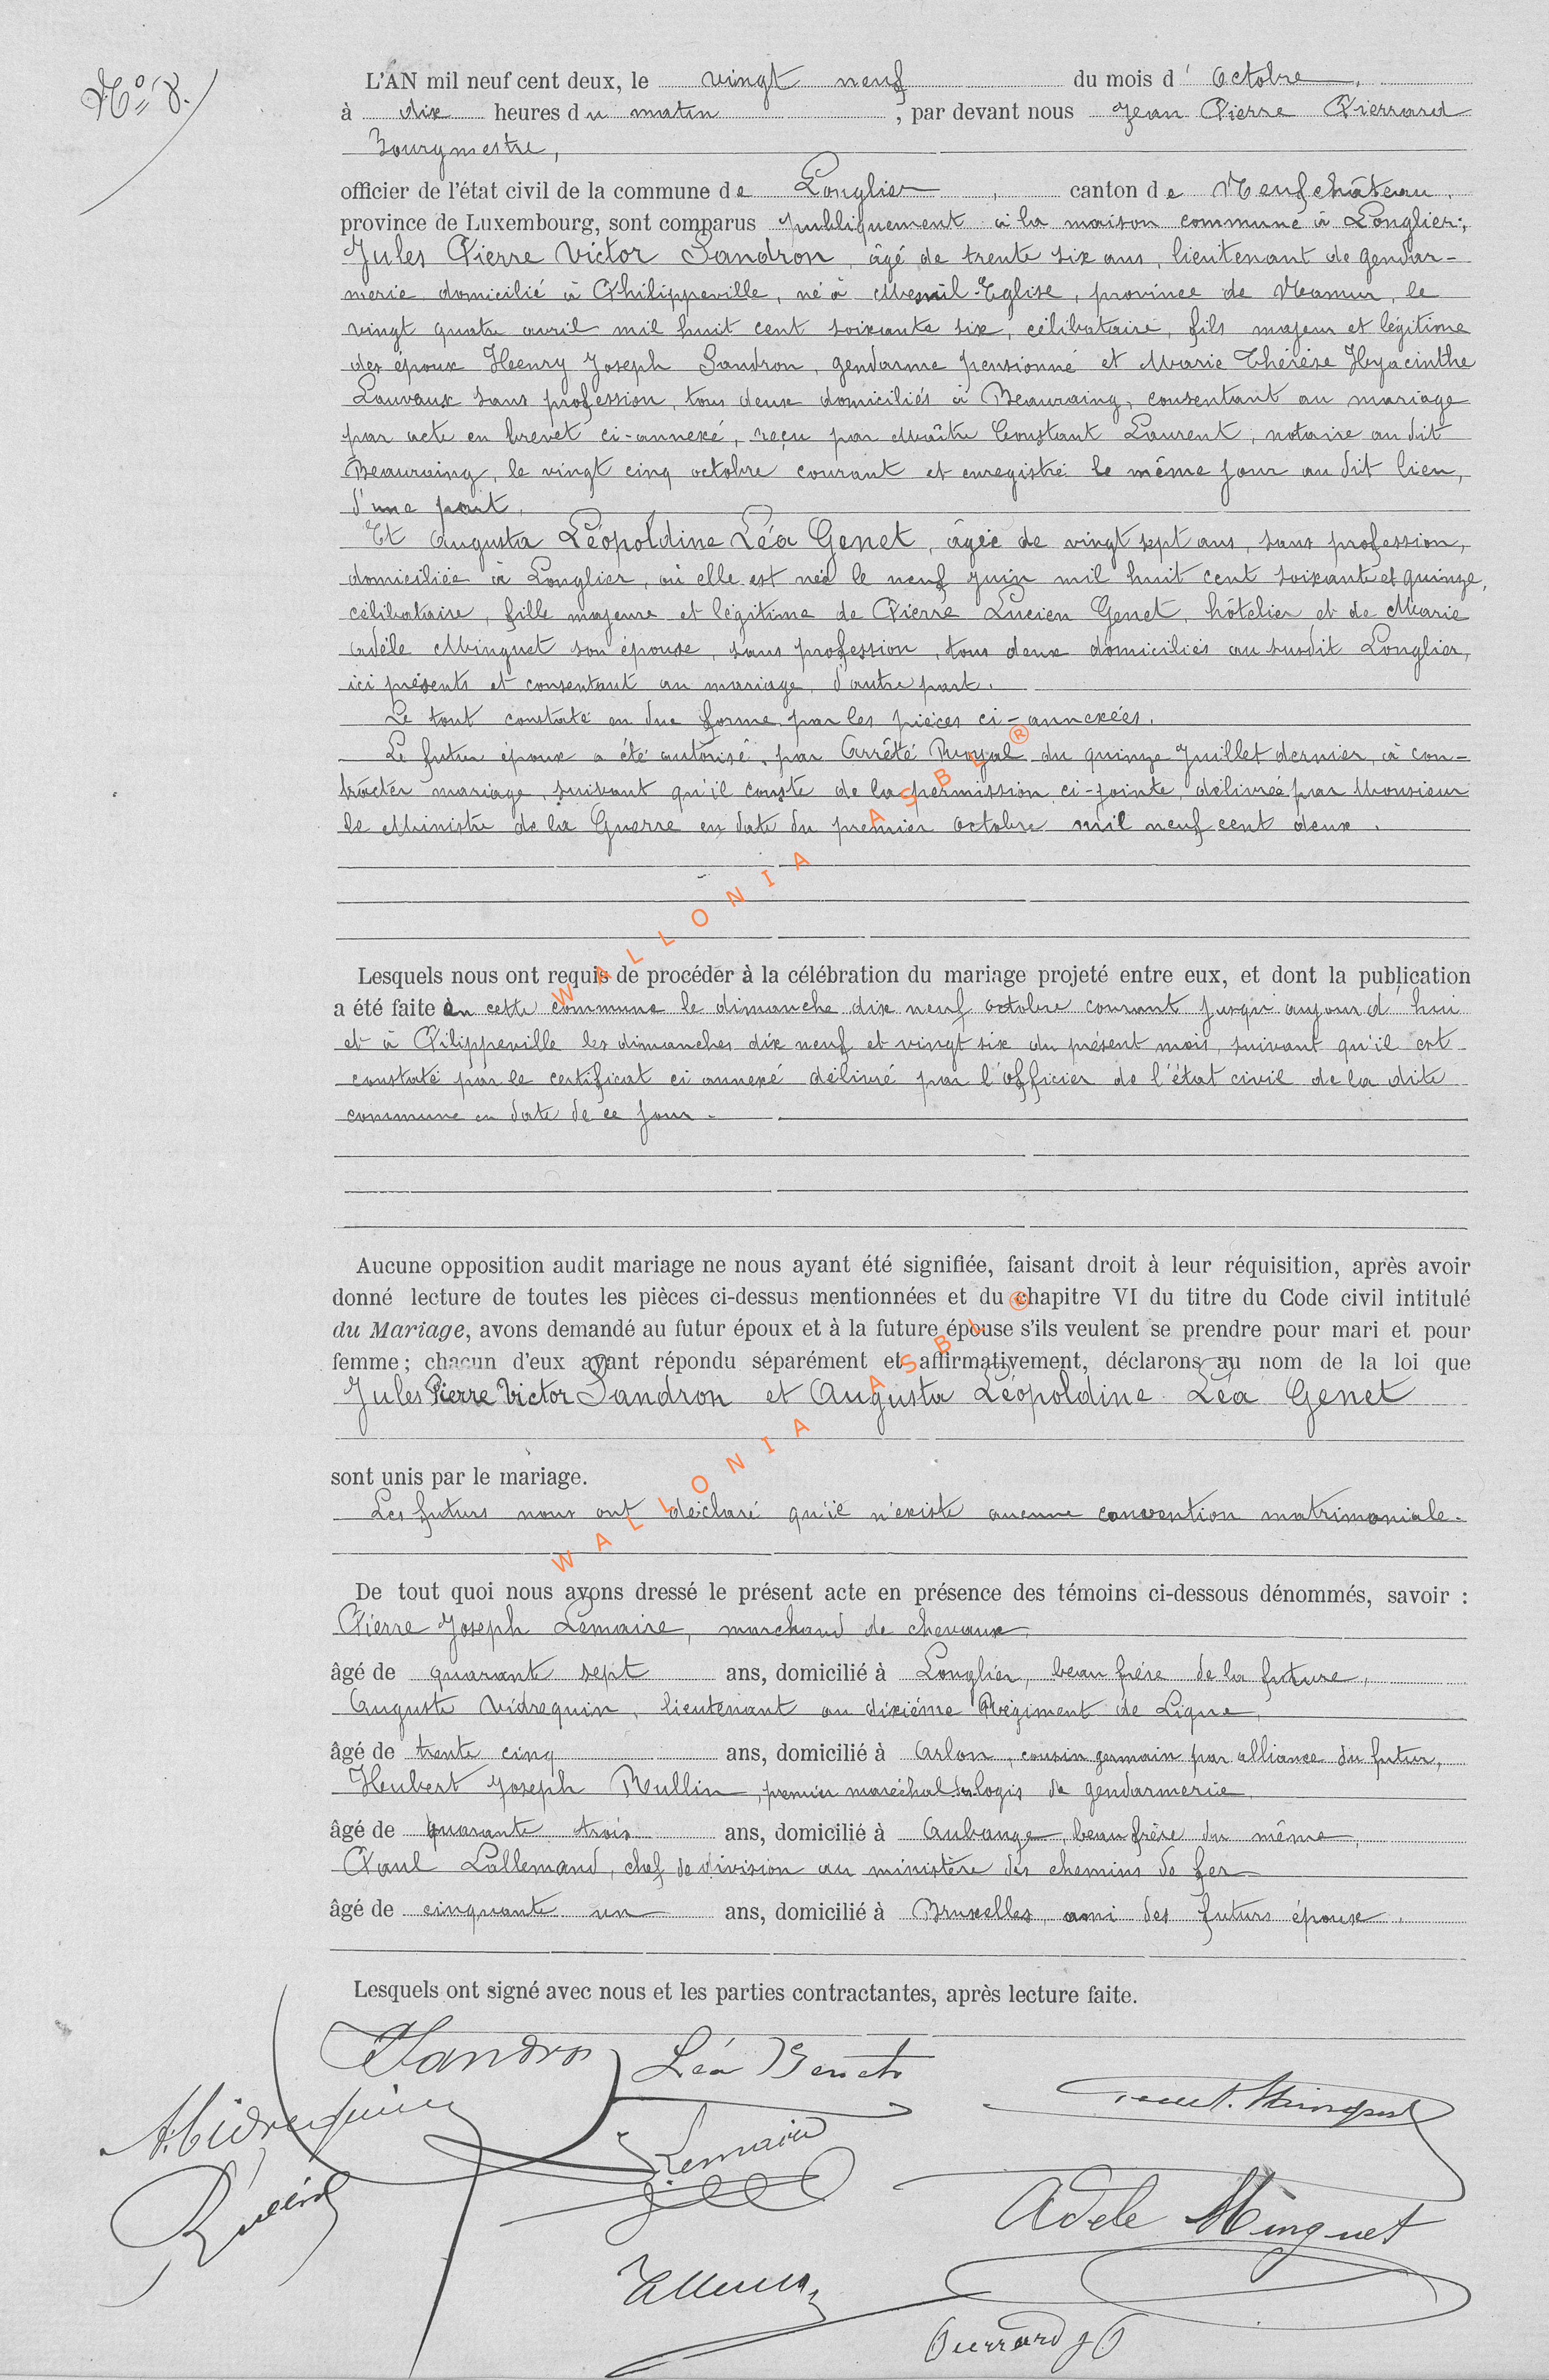 N° 8.
L'AN mil neuf cent deux, le vingt neuf du mois d' Octobre,
à dix heures du matin, par devant nous Jean Pierre Pierrard
Bourgmestre,
officier de l'état civil de la commune de Longlier, canton de Neufchâteau,
province de Luxembourg, sont comparus publiquement à la maison commune à Longlier;
Jules Pierre Victor Sandron, âgé de trente six ans, lieutenant de gendar-
merie domicilié à Philippeville, né à Mesnil-Eglise, province de Namur, le
vingt quatre avril mil huit cent soixante six, célibataire, fils majeur et légitime
des époux Henry Joseph Sandron, gendarme pensionné et Marie Thérèse Hyacinthe
Lauvaux sans profession, tous deux domiciliés à Beauraing, consentant au mariage
par acte en brevet ci-annexé, reçu par Maître Constant Laurent, notaire au dit
Beauraing, le vingt cinq octobre courant et enregistré le même jour au dit lieu,
d'une part,
Et Augusta Léopoldine Léa Genet, âgée de vingt sept ans, sans profession,
domiciliée à Longlier, où elle est née le neuf juin mil huit cent soixante et quinze,
célibataire, fille majeure et légitime de Pierre Lucien Genet, hôtelier et de Marie
Adèle Minguet son épouse, sans profession, tous deux domiciliés au susdit Longlier,
ici présents et consentant au mariage, d'autre part.
Le tout constaté en due forme par les pièces ci-annexées.
Le futur époux a été autorisé, par Arrêté Royal du quinze Juillet dernier, à con-
tracter mariage, suivant qu'il conste de la permission ci-jointe, délivrée par Monsieur
le Ministre de la Guerre en date du premier Octobre mil neuf cent deux.
Lesquels nous ont requis de procéder à la célébration du mariage projeté entre eux, et dont la publication
a été faite en cette commune le dimanche dix neuf octobre courant jusqu'aujourd'hui
et à Pilippeville les dimanches dix neuf et vingt six du présent mois, suivant qu'il est
constaté par le certificat ci annexé délivré par l'officier de l'état civil de la dite
commune en date de ce jour.
Aucune opposition audit mariage ne nous ayant été signifiée, faisant droit à leur réquisition, après avoir
donné lecture de toutes les pièces ci-dessus mentionnées et du chapitre VI du titre du Code civil intitulé
du Mariage, avons demandé au futur époux et à la future épouse s'ils veulent se prendre pour mari et pour
femme; chacun d'eux ayant répondu séparément et affirmativement, déclarons au nom de la loi que
Jules Pierre Victor Sandron et Augusta Léopoldine Léa Genet
sont unis par le mariage.
Les futurs nous ont déclaré qu'il n'existe aucune convention matrimoniale.
De tout quoi nous avons dressé le présent acte en présence des témoins ci-dessous dénommés, savoir :
Pierre Joseph Lemaire, marchand de chevaux,
âgé de quarante sept ans, domicilié à Longlier, beau frère de la future,
Auguste Vidrequin, lieutenant au dixième Régiment de Ligne,
âgé de trente cinq ans, domicilié à Arlon, cousin germain par alliance du futur,
Heubert Joseph Rullin, premier maréchal des logis de gendarmerie
âgé de quarante trois ans, domicilié à Aubange, beau frère du même,
Paul Lallemand, chef de division au ministère des chemins de fer
âgé de cinquante un ans, domicilié à Bruxelles, ami des futurs époux.
Lesquels ont signé avec nous et les parties contractantes, après lecture faite.
Sandron Léa Genet
A. Vidrequin
Lemaire
Rullin
Adèle Minguet
Pierrard JP
WALLONIA ASBL ®
WALLONIA ASBL ®